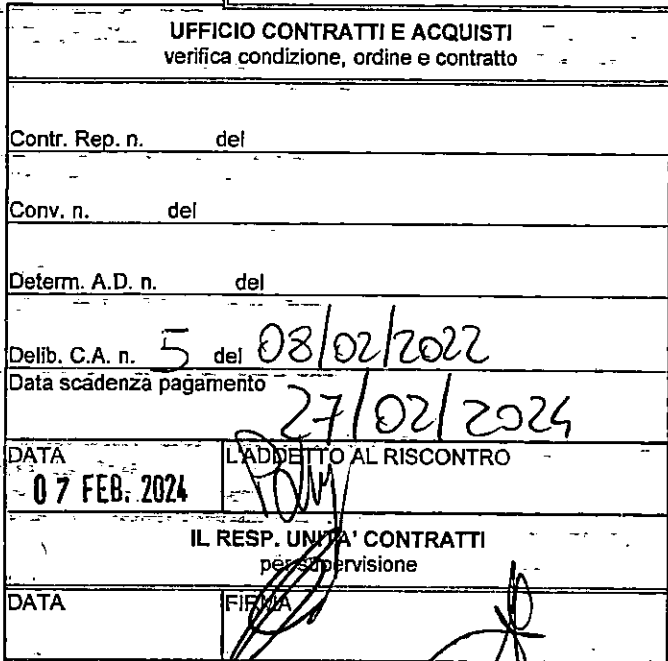 UFFICIO CONTRATTI E ACQUISTI
verifica condizione, ordine e contratto
Contr. Rep. n. del
Conv. n. del
Determ. A.D. n. del
Delib. C.A. n. 5 del 08/02/2022
Data scadenza pagamento
27/02/2024
DATA L'ADDETTO AL RISCONTRO
07 FEB. 2024
IL RESP. UNITA' CONTRATTI
per supervisione
DATA FIRMA